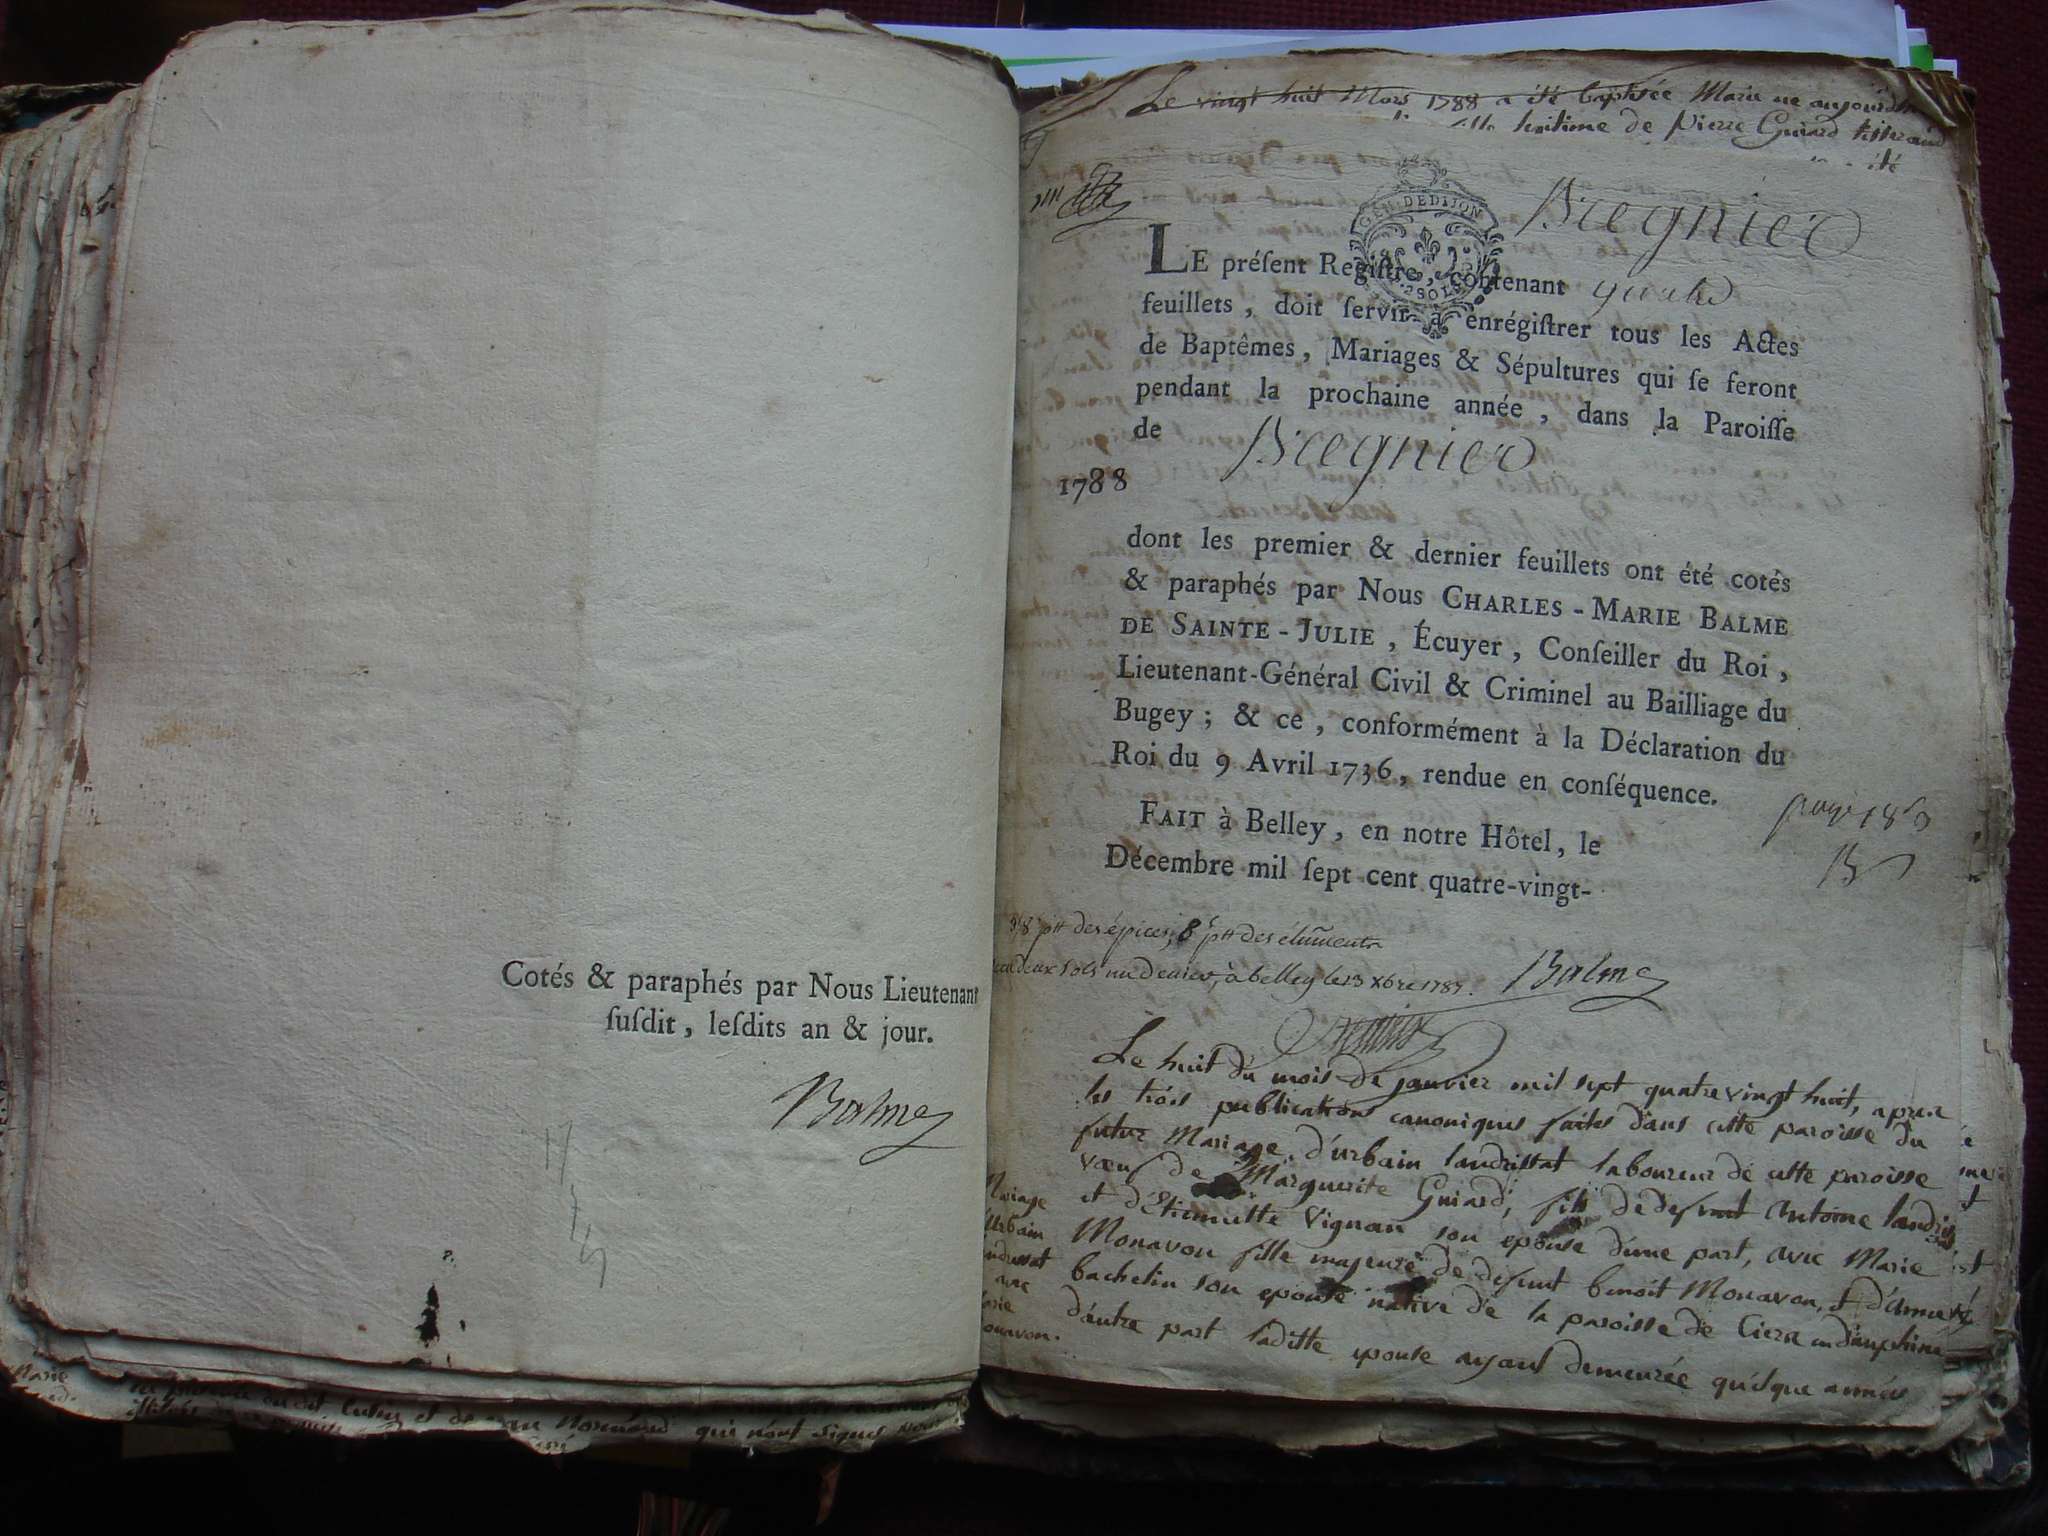 Cotés & paraphés par Nous Lieutenant
ſuſdit, leſdits an & jour.
Balme
Le vingt huit Mars 1788 a été baptisée Marie ne aujourdh
legitime de Pierre Guiard tisserand
été
GEN. DE DIJON
2 SOLS
Bregnier
LE préſent Regiſtre, contenant quatre
feuillets, doit ſervir à enrégiſtrer tous les Actes
de Baptêmes, Mariages & Sépultures qui ſe feront
pendant la prochaine année, dans la Paroiſſe
de Bregnier
1788
dont les premier & dernier feuillets ont été cotés
& paraphés par Nous CHARLES-MARIE BALME
DE SAINTE-JULIE, Écuyer, Conſeiller du Roi,
Lieutenant-Général Civil & Criminel au Bailliage du
Bugey; & ce, conformément à la Déclaration du
Roi du 9 Avril 1736, rendue en conſéquence.
FAIT à Belley, en notre Hôtel, le
Décembre mil ſept cent quatre-vingt-
des épices, 8 ptt des
deux sols à belley le 13 xbre 1787. Balme
Le huit du mois de janvier mil sept quatre vingt huit, apres
les trois publications canoniques faites dans cette paroisse du
futur Mariage d'urbain landrissat laboureur de cette paroisse
vœuf de Marguerite Guiard, fils de defunt Antoine landris
et d'Etiennette Vignan son epouse d'une part, avec Marie
Monavon fille majeure de defunt benoit Monavon, et d'
bachelin son epouse native de la paroisse de Ciera en dauphiné
d'autre part laditte epouse ayant demeurée quelque années
Mariage
Urbain
avec
Marie
onavon.